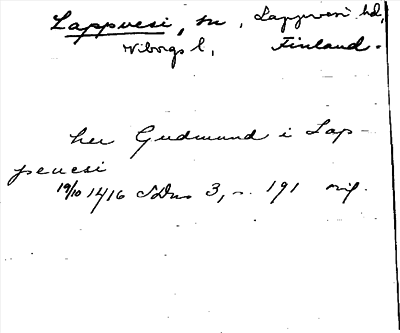 Lappvesi, sn, Lappvesi hd,
Viborgs l, Finland.
her Gudmund i Lap-
peuesi
19/10 1416 SDns 3, s. 191 orig.